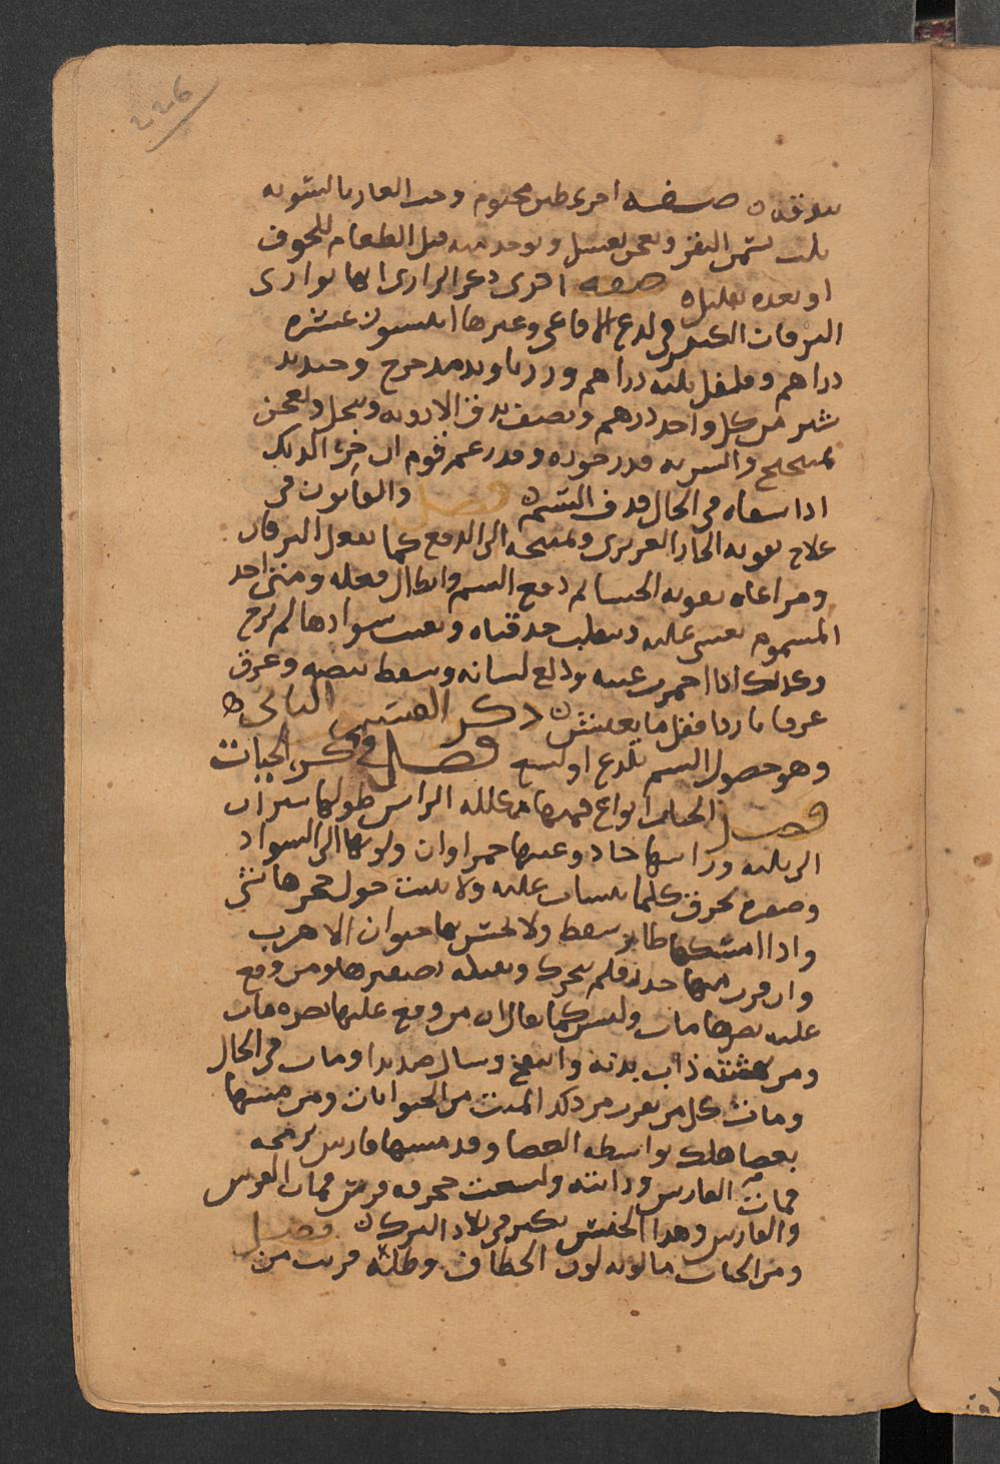 ٢٢٦
بندقة ٥ صفه اخرى طين مختوم وحب الغار بالسويه
يلت بسمن البقر ويعجن بعسل ويوخذ منه قبل الطعام للخوف
او بعده بقليل ٥ صفه اخرى ذكر الرازى انها توازى
الترياقات الكبير فى لدغ الافاعى وغيرها انيسون عشره
دراهم وفلفل ثلثه دراهم وزراوند مدحرج وجندبيد
ستر من كل واحد درهم ونصف يدق الادويه وينخل ويعجن
بميبختج والشربه قدر جوزه وقد زعم قوم ان خرء الديك
اذا سقاه فى الحال قذف السم ٥ فصل والقانون فى
علاج تقويه الحار الغريزى وتهيجه الى الدفع كما يفعل الترياق
ومراعاه تقويه الحسا ثم دفع السم وابطال فعله ومتى احد
المسموم يغشى عليه وتنقلب حدقتاه ويغيب سوادها لم يرج
وكذلك اذا احمرت عينه ودلع لسانه وسقط نبضه وعرق
عرقا باردا فقل ما يعيش ٥ ذكر القسم الثانى
وهو حصول السم بلدغ او لسع فصل فى ذكر الحيات
فصل الحيات انواع فمنها مكلله الراس طولها شبران
الى ثلثه وراسها حاد وعينها حمراوان ولونها الى السواد
وصفره تحرق كلما تنساب عليه ولا ينبت حول جحرها شى
واذا امسكها طاير سقط ولا يحس بها حيوان الا هرب
وان قرب منها خدر فلم يتحرك وتقتله بصفيرها ومن وقع
عليه بصرها مات وليس كما يقال ان من وقع عليها بصره مات
ومن نهشته ذاب بدنه وانتفخ وسال صديدا ومات فى الحال
ومات كل من يقرب من ذلك الميت من الحيوانات ومن مسها
بعصا هلك بواسطه العصا وقد مسها فارس برمحه
فمات الفارس ودابته ولسعت جحفله فرس فمات الفرس
والفارس وهذا الجنس يكثر فى بلاد الترك ٥ فصل
ومن الحيات ما لونه لون الخطاف وطله قريب من